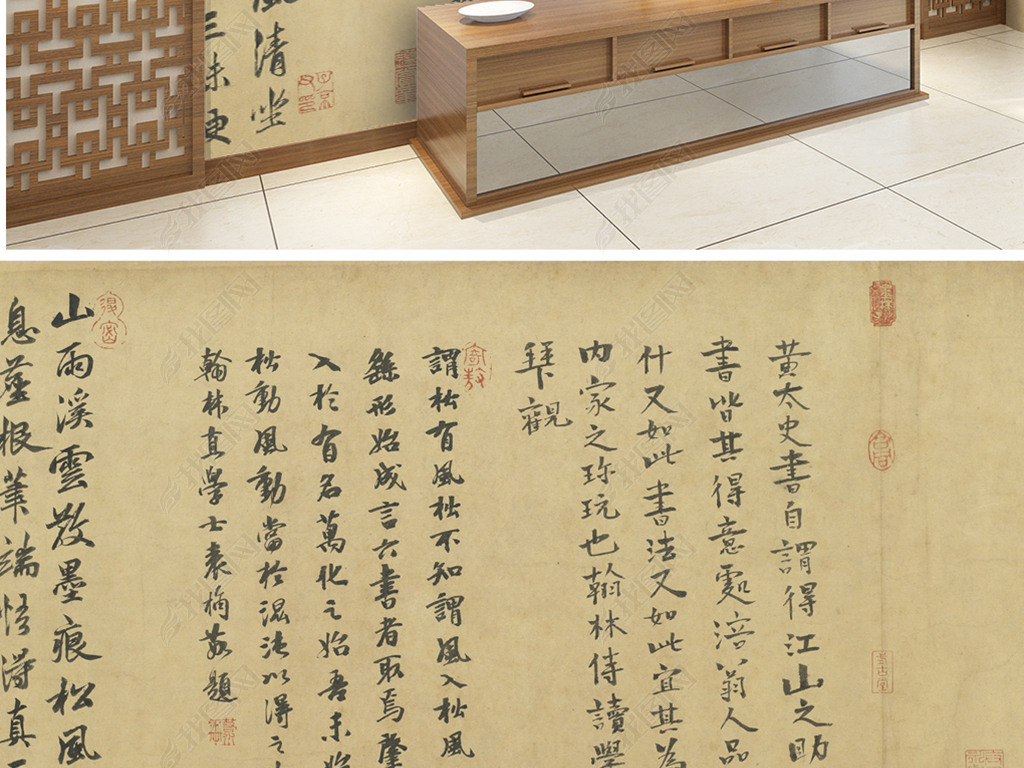 清坐
三昧更
黄太史書自謂得江山之助
書皆其得意處涪翁人品
什又如此書法又如此宜其為
内家之珎玩也翰林侍讀學
拜觀
謂松有風松不知謂風入松風
繇形始成言六書者取焉
入於有名萬化之始吾未始
松動風動當於混沌以得之
翰林直學士袁桷敬題
山雨溪雲散墨痕松風
息菴根華端悟得真